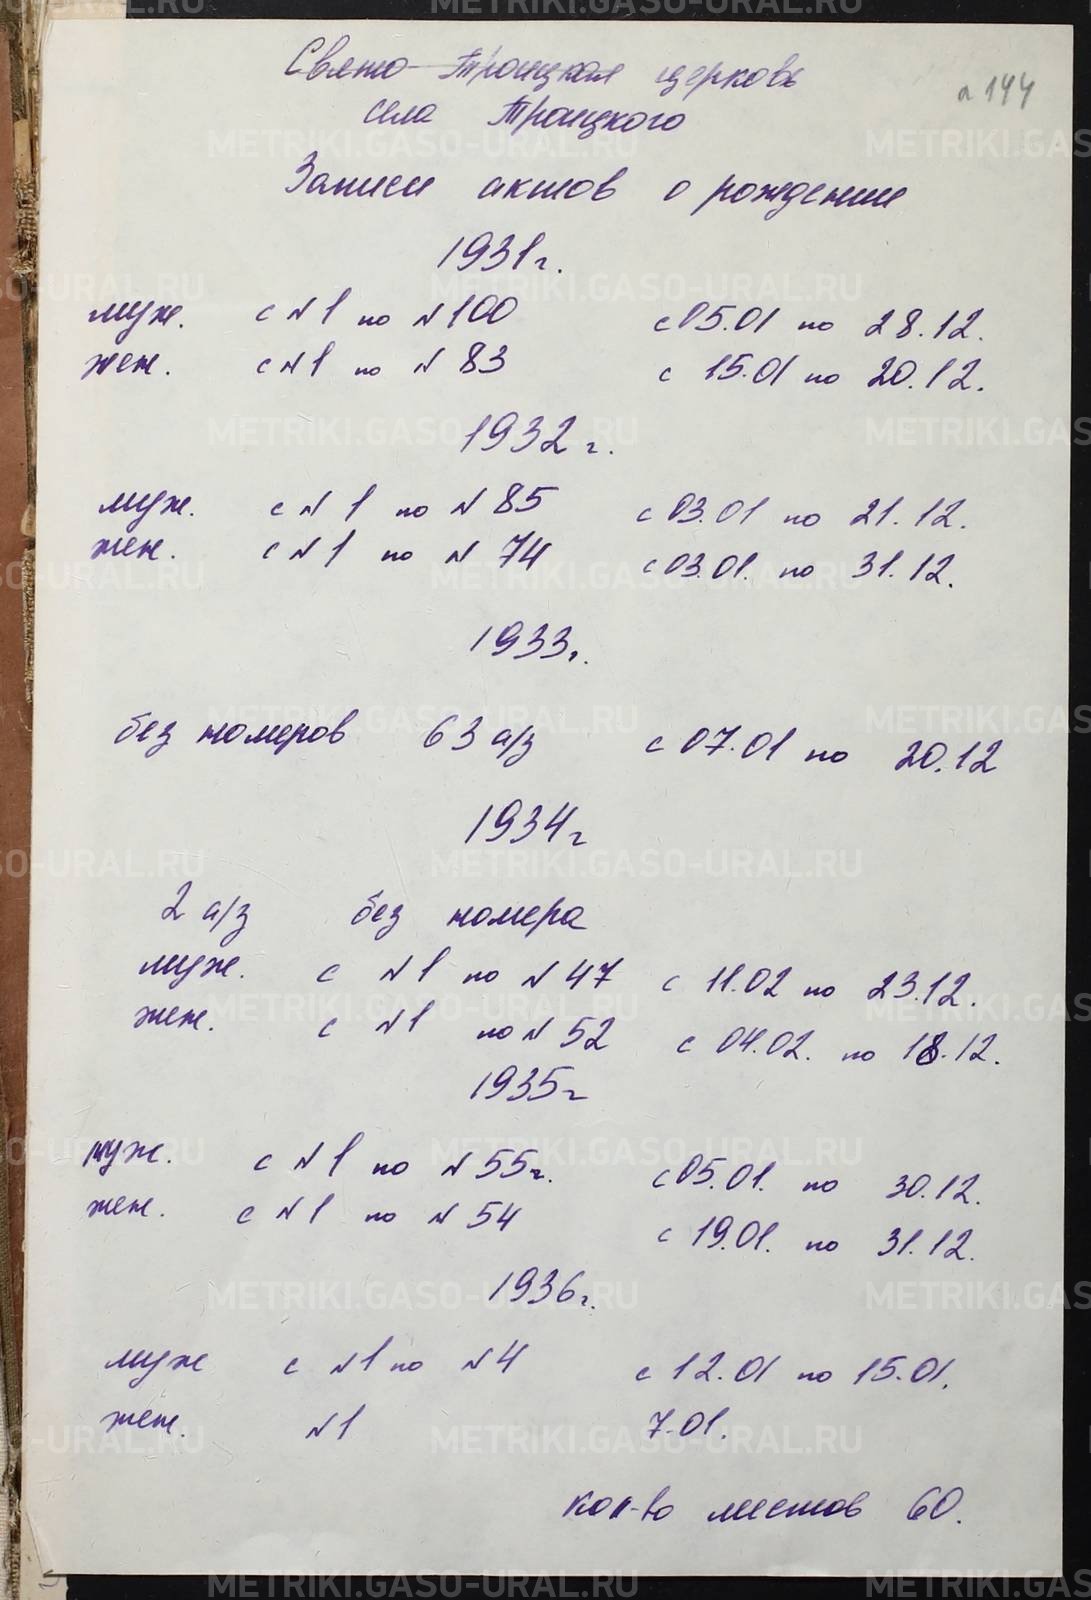 Свято-Троицкая церковь
л 144
села Троицкого
Записи актов о рождении
1931г.
муж. с N1 по N100 с 05.01 по 28.12.
жен. с N1 по N 83 с 15.01 по 20.12.
1932г.
муж. с N 1 по N 85 с 03.01 по 21.12.
жен. с N1 по N 74 с 03.01. по 31.12.
1933г.
без номеров 63 а/з с 07.01 по 20.12
1934г
2 а/з без номера
муж. с N1 по N 47 с 11.02 по 23.12.
жен. с N1 по N 52 с 04.02. по 18.12.
1935г
муж. с N1 по N 55г. с 05.01. по 30.12.
жен. с N1 по N 54 с 19.01. по 31.12.
1936г.
муж с N1 по N4 с 12.01 по 15.01.
жен. N1 7.01.
кол-во листов 60.
METRIKI.GASO-URAL.RU